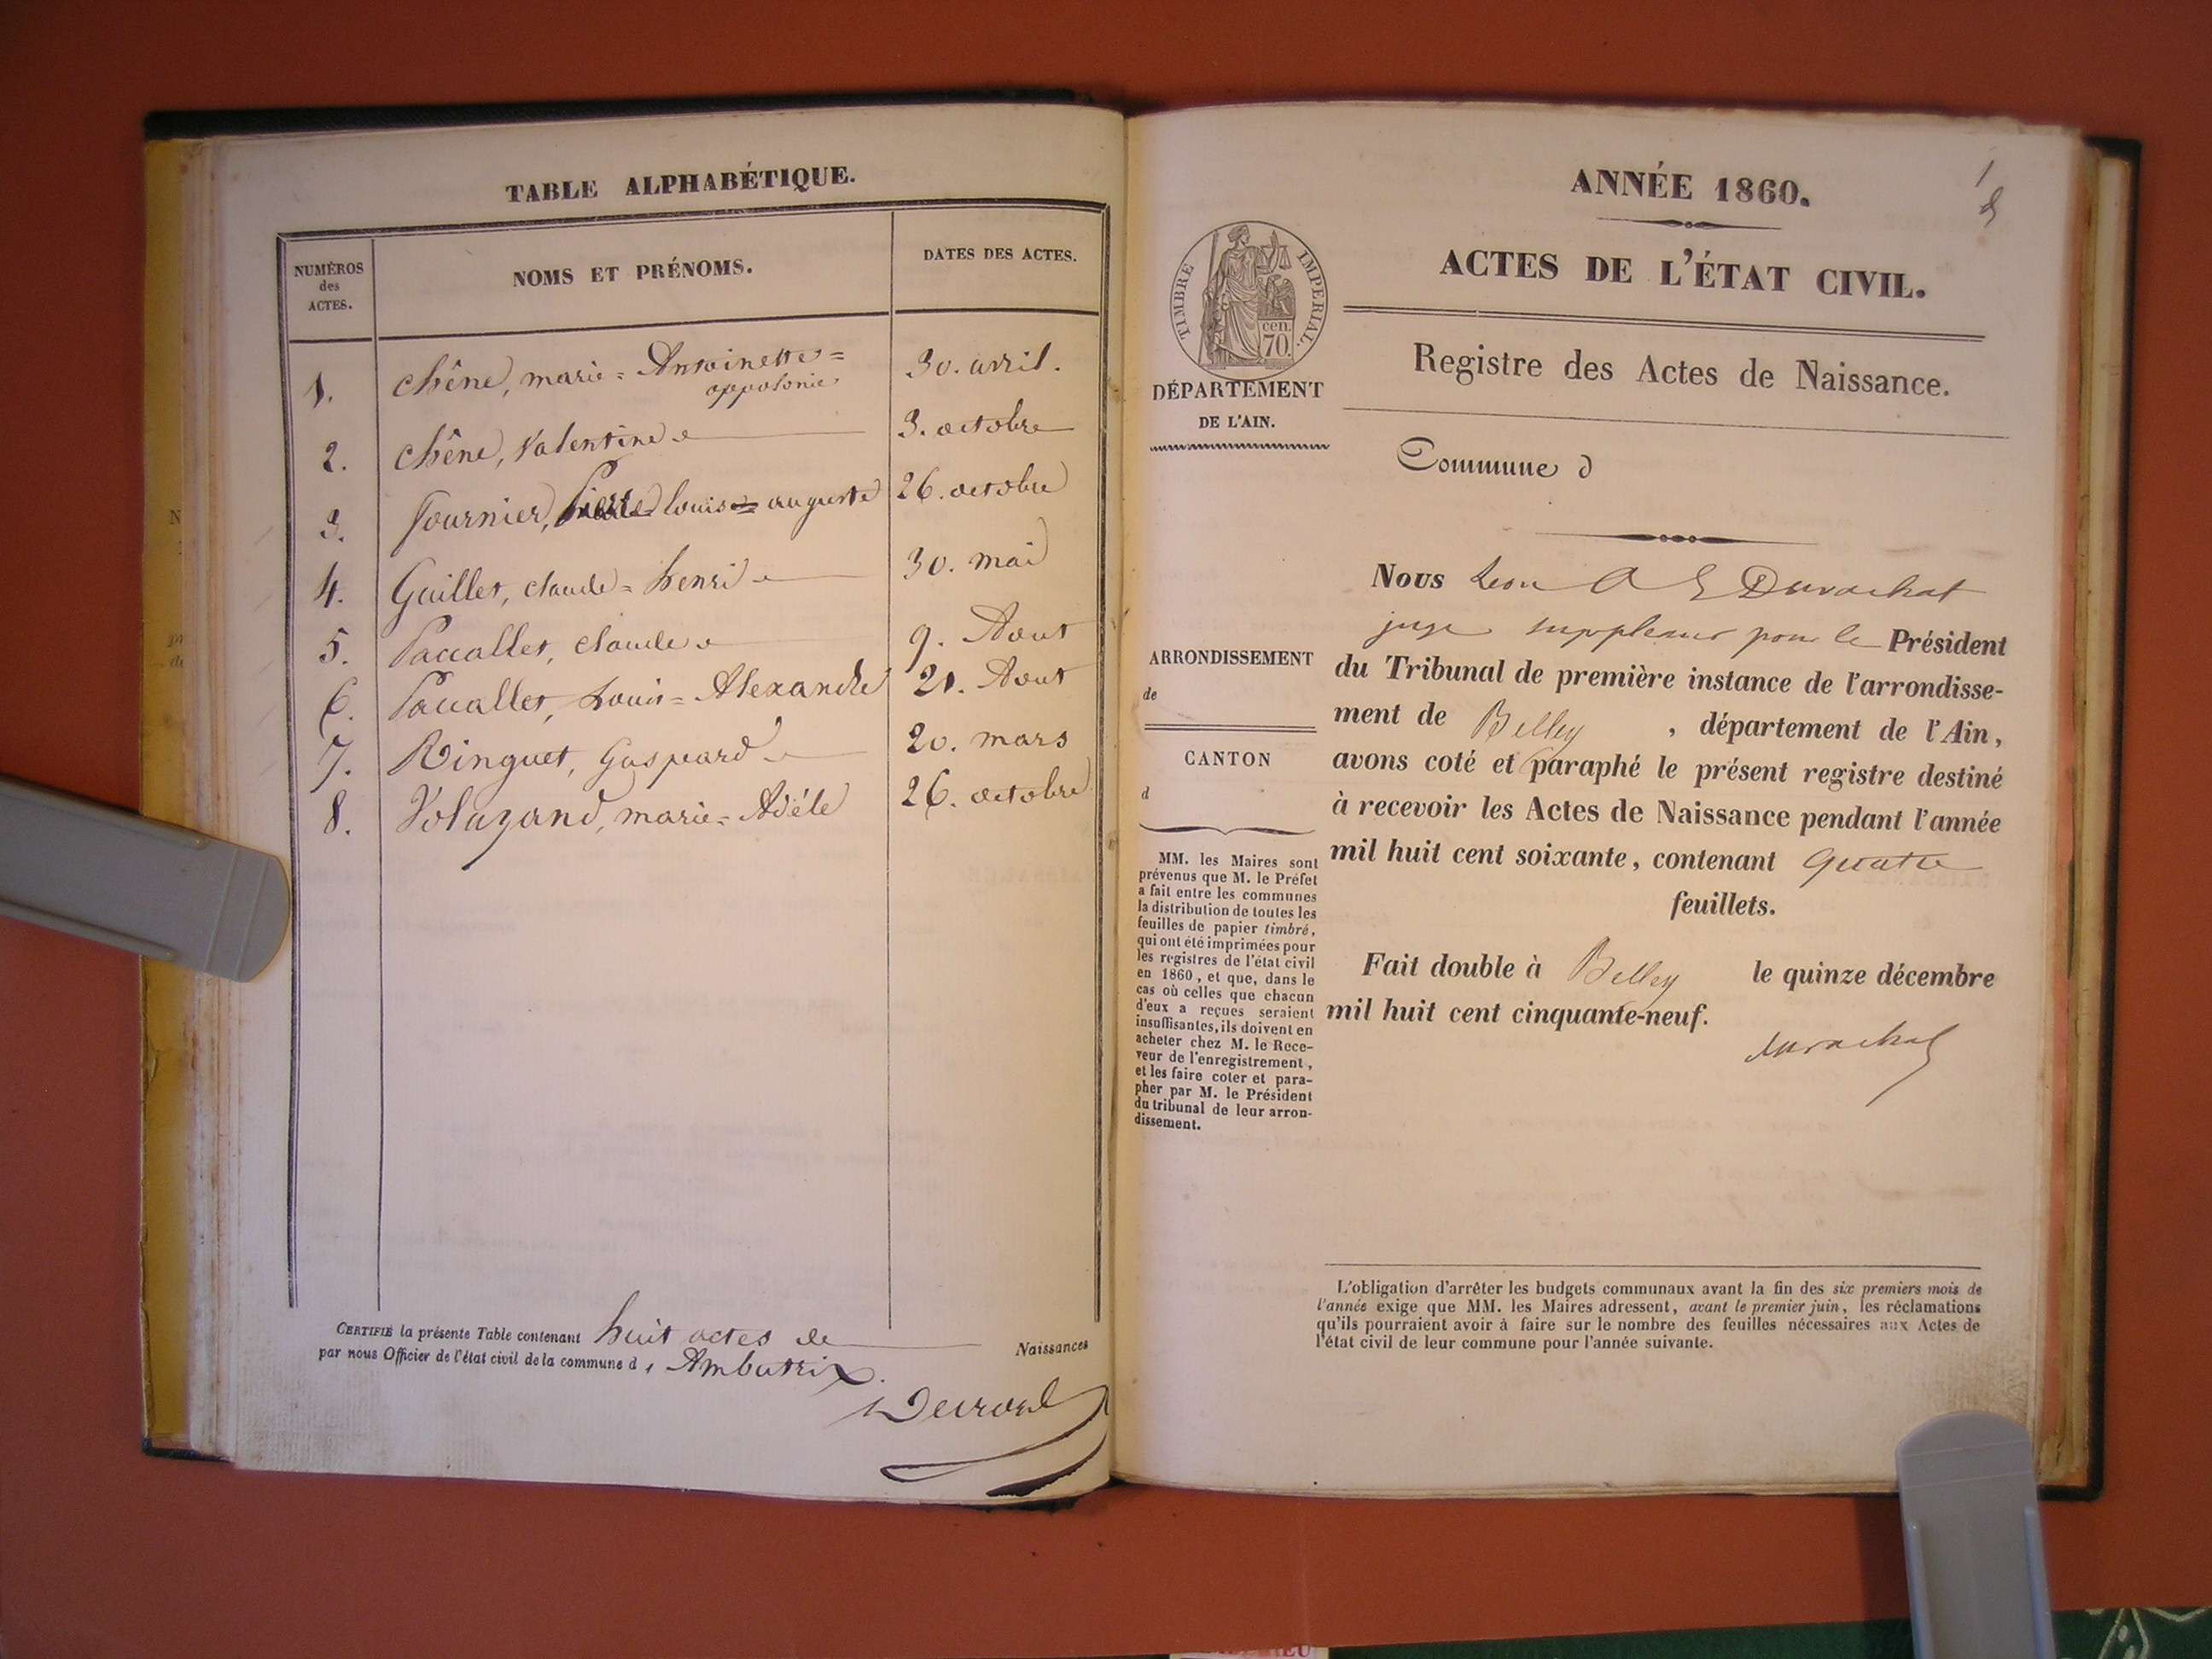 TABLE ALPHABÉTIQUE.
NUMÉROS des ACTES.
NOMS ET PRÉNOMS.
DATES DES ACTES.
1. Chêne, marie = Antoinette = appolonie 30. avril.
2. Chêne, Valentine 3. octobre
3. fournier, Pierre louis = auguste 26. octobre
4. Guillet, claude = henri 30. mai
5. Paccallet, claude 9. Aout
6. Paccallet, Louis = Alexandre 21. Aout
7. Ringuet, Gaspard 20. mars
8. Volazand, marie = Adéle 26. octobre
CERTIFIÉ la présente Table contenant huit actes de Naissances
par nous Officier de l'état civil de la commune d'Ambutrix.
1
ANNÉE 1860.
ACTES DE L'ÉTAT CIVIL.
TIMBRE IMPÉRIAL.
cen.
70.
DÉPARTEMENT
DE L'AIN.
Registre des Actes de Naissance.
Commune d
ARRONDISSEMENT
de
CANTON
d
MM. les Maires sont
prévenus que M. le Préfet
a fait entre les communes
la distribution de toutes les
feuilles de papier timbré,
qui ont été imprimées pour
les registres de l'état civil
en 1860, et que, dans le
cas où celles que chacun
d'eux a reçues seraient
insuffisantes, ils doivent en
acheter chez M. le Rece-
veur de l'enregistrement,
et les faire coter et para-
pher par M. le Président
du tribunal de leur arron-
dissement.
Nous Leon A E Durochat
juge suppleant pour le Président
du Tribunal de première instance de l'arrondisse-
ment de Belley, département de l'Ain,
avons coté et paraphé le présent registre destiné
à recevoir les Actes de Naissance pendant l'année
mil huit cent soixante, contenant quatre
feuillets.
Fait double à Belley le quinze décembre
mil huit cent cinquante-neuf.
Durochat
L'obligation d'arrêter les budgets communaux avant la fin des six premiers mois de
l'année exige que MM. les Maires adressent, avant le premier juin, les réclamations
qu'ils pourraient avoir à faire sur le nombre des feuilles nécessaires aux Actes de
l'état civil de leur commune pour l'année suivante.